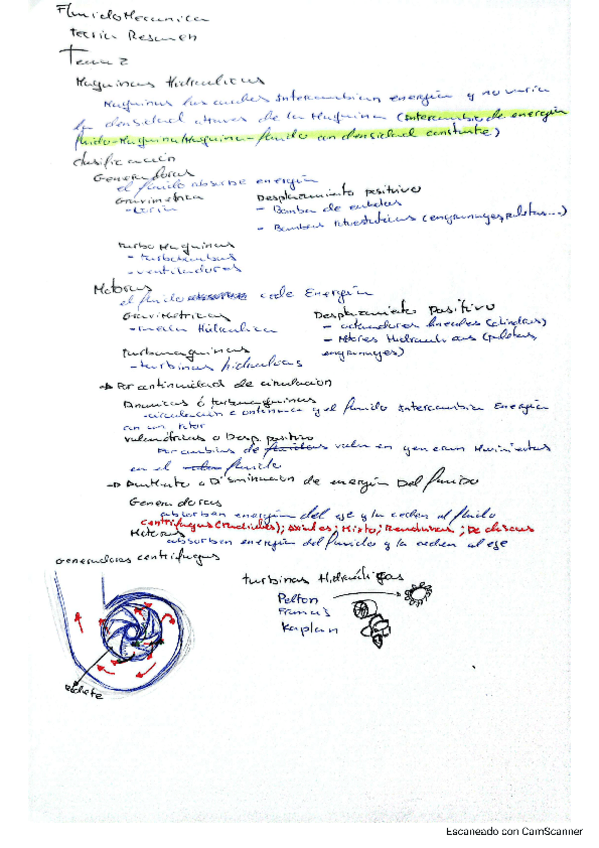 FluidoMecanica
Teoria Resumen
Tema 2
Maquinas Hidraulicas
Maquinas las cuales Intercambian energia y no varia
la densidad atraves de la Maquina (Intercambio de energia
fluido-Maquina/Maquina-fluido con densidad constante)
Clasificación
Generadoras
el fluido absorbe energia
Gravimetrica
Desplazamiento positivo
- Bomba de embolos
- Bombas rotoestaticas (engranajes, paletas...)
Turbo Maquinas
- turbobombas
- ventiladores
Motoras
el fluido cede Energia
Gravimetricas
- Hidraulica
Desplazamiento Positivo
- actuadores lineales (cilindros)
- Motores Hidraulicos (paletas, engranajes)
Turbomaquinas
- turbinas hidraulicas
→ Por continuidad de circulacion
Dinamicas ó turbomaquinas
- circulación continua y el fluido Intercambia Energia
con un rotor
Volumétricas o Desp. positivo
Por cambios de volumen generan Movimientos
en el fluido
→ Aumento o Disminucion de energia Del fluido
Generadoras
absorben energia del eje y la ceden al fluido
Centrifugas (Radiales); Axiales; Mixto; ; De discos
Motoras
absorben energia del fluido y la ceden al eje
Generadoras centrifugas
turbinas Hidraúlicas
Pelton
Francis
Kaplan
rodete
Escaneado con CamScanner